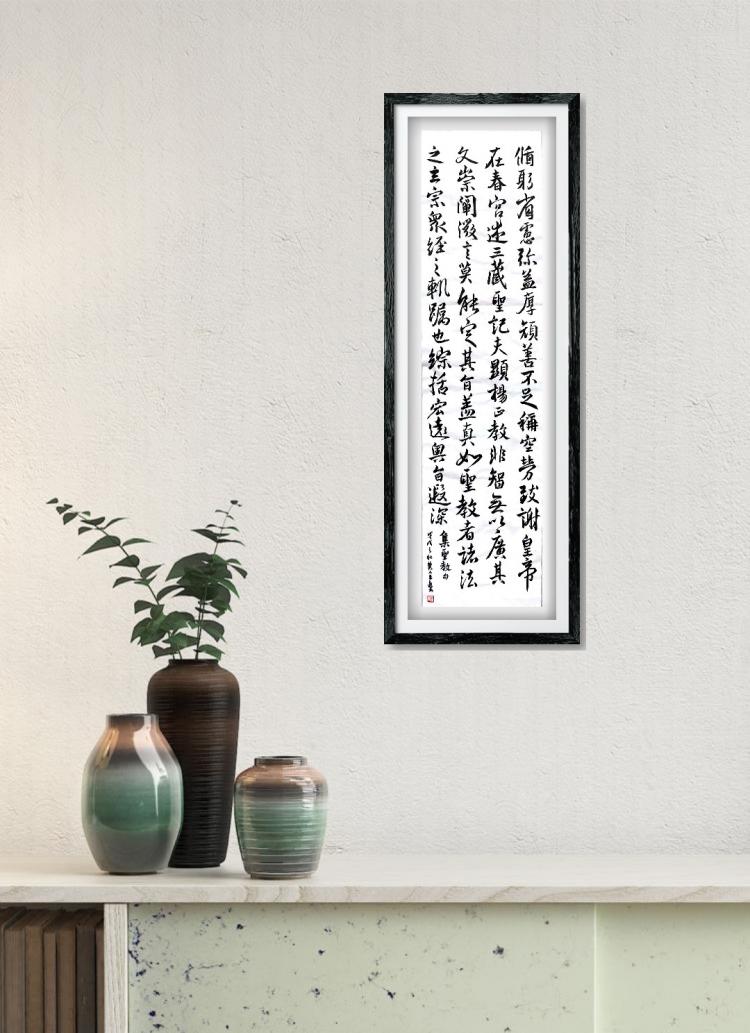 脩躬省慮弥益厚顔善不足稱空勞致謝皇帝
在春宮述三藏聖記夫顯楊正教非智無以廣其
文崇闡微言莫能定其旨盖真如聖教者諸法
之玄宗衆經之軌躅也綜括宏遠奥旨遐深
集聖教句